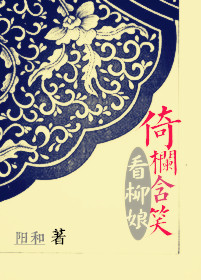 倚欄含笑
看柳娘
阳和 著